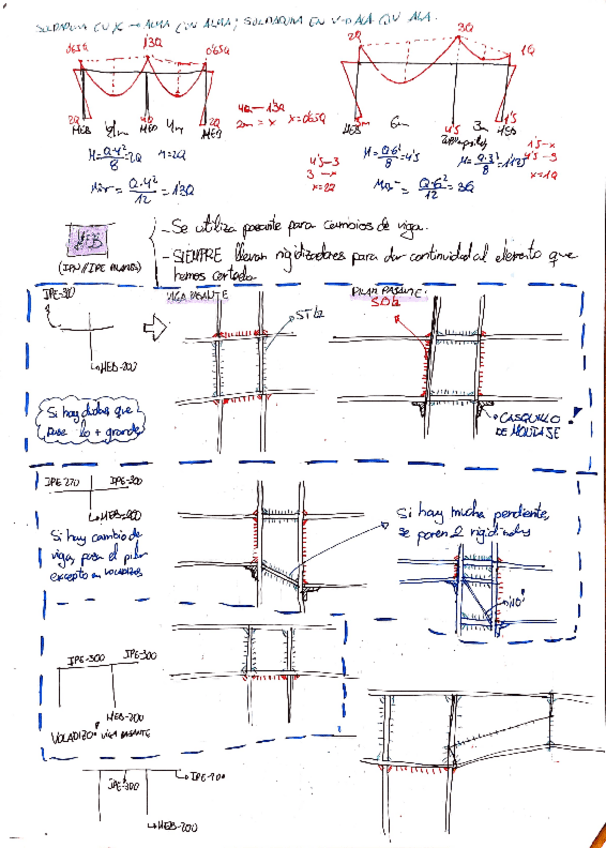 SOLDADURA EN K → ALMA CON ALMA; SOLDADURA EN V → ALA CON ALA.
0'65Q 1'3Q 0'65Q
2Q 3Q 1Q
2Q 4Q 2Q
HEB 4m HEB 4m HEB
4Q — 1'3Q
2m = x x = 0'65Q
HEB 6m 4'5 3m HEB 1'5
M = Q·4²/8 = 2Q
M = 2Q
M = Q·4²/12 = 1'3Q
4'5 – 3
3 – x
x = 2Q
M = Q·6²/8 = 4'5
M = Q·3²/8 = 1'125
M = Q·6²/12 = 3Q
1'5 – x
4'5 – 3
x = 1Q
HEB
(IPN // IPE)
- Se utiliza pasante para cambios de viga.
- SIEMPRE llevan rigidizadores para dar continuidad al elemento que
hemos cortado.
IPE-300
HEB-200
VIGA PASANTE
PILAR PASANTE
Si hay dudas que
pase lo + grande
CASQUILLO
DE MONTAJE !
IPE-270 IPE-300
HEB-200
Si hay cambio de
viga, pasa el pilar
excepto en voladizos
Si hay mucha pendiente,
se ponen 2 rigidizadores
IPE-300 IPE-300
HEB-200
VOLADIZO VIGA PASANTE
IPE-300
HEB-200